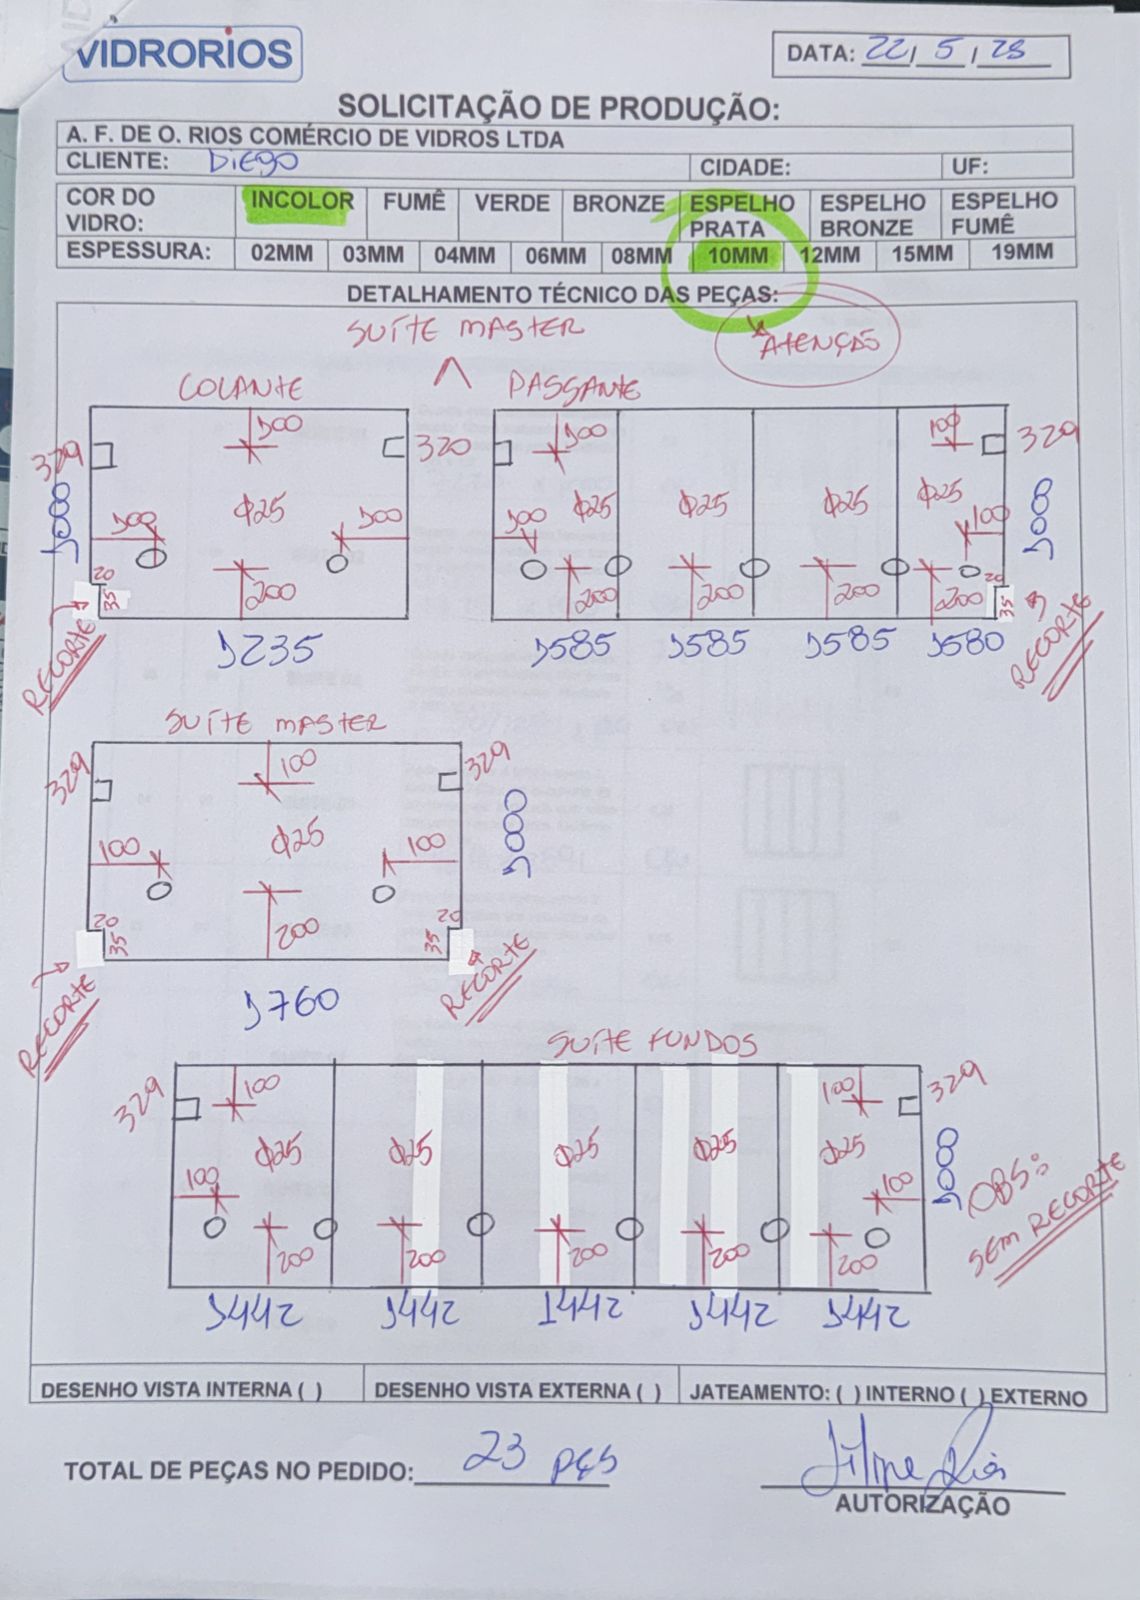 VIDRORIOS
DATA: 22/5/23
SOLICITAÇÃO DE PRODUÇÃO:
A. F. DE O. RIOS COMÉRCIO DE VIDROS LTDA
CLIENTE: DiEgO CIDADE: UF:
COR DO VIDRO: INCOLOR FUMÊ VERDE BRONZE ESPELHO PRATA ESPELHO BRONZE ESPELHO FUMÊ
ESPESSURA: 02MM 03MM 04MM 06MM 08MM 10MM 12MM 15MM 19MM
DETALHAMENTO TÉCNICO DAS PEÇAS:
SUÍTE MASTER
ATENÇÃO
COLANTE PASSANTE
100 100 100
329 320 329
1000 Φ25 Φ25 Φ25 Φ25 Φ25 1000
100 100 100 100
20 35 200 200 200 200 200 20 35
RECORTE RECORTE
1235 1585 1585 1585 1580
SUÍTE MASTER
329 100 329
1000
Φ25
100 100
20 35 200 20 35
RECORTE RECORTE
1760
SUÍTE FUNDOS
329 100 100 329
Φ25 Φ25 Φ25 Φ25 Φ25 1000
100 100
OBS: SEM RECORTE
200 200 200 200 200
1442 1442 1442 1442 1442
DESENHO VISTA INTERNA ( ) DESENHO VISTA EXTERNA ( ) JATEAMENTO: ( ) INTERNO ( ) EXTERNO
TOTAL DE PEÇAS NO PEDIDO: 23 pçs
Filipe Rios
AUTORIZAÇÃO